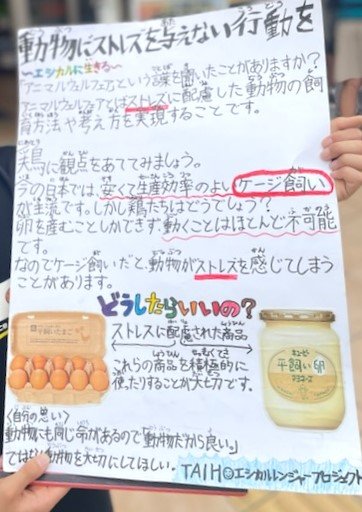 動物にストレスを与えない行動を
〜エシカルに生きる〜
「アニマルウェルフェア」という言葉を聞いたことがありますか？
アニマルウェルフェアとはストレスに配慮した動物の飼
育方法や考え方を実現することです。
鶏に観点をあててみましょう。
今の日本では、安くて生産効率のよいケージ飼い
が主流です。しかし鶏たちはどうでしょう？
卵を産むことしかできず、動くことはほとんど不可能
です。
なのでケージ飼いだと、動物がストレスを感じてしまう
ことがあります。
どうしたらいいの？
ストレスに配慮された商品
これらの商品を積極的に
使ったりすることが大切です。
平飼いたまご
キユーピー
平飼い卵
マヨネーズ
〈自分の思い〉
動物にも同じ命があるので「動物だから良い」
ではなく動物を大切にしてほしい。
TAIHOエシカルレンジャープロジェクト